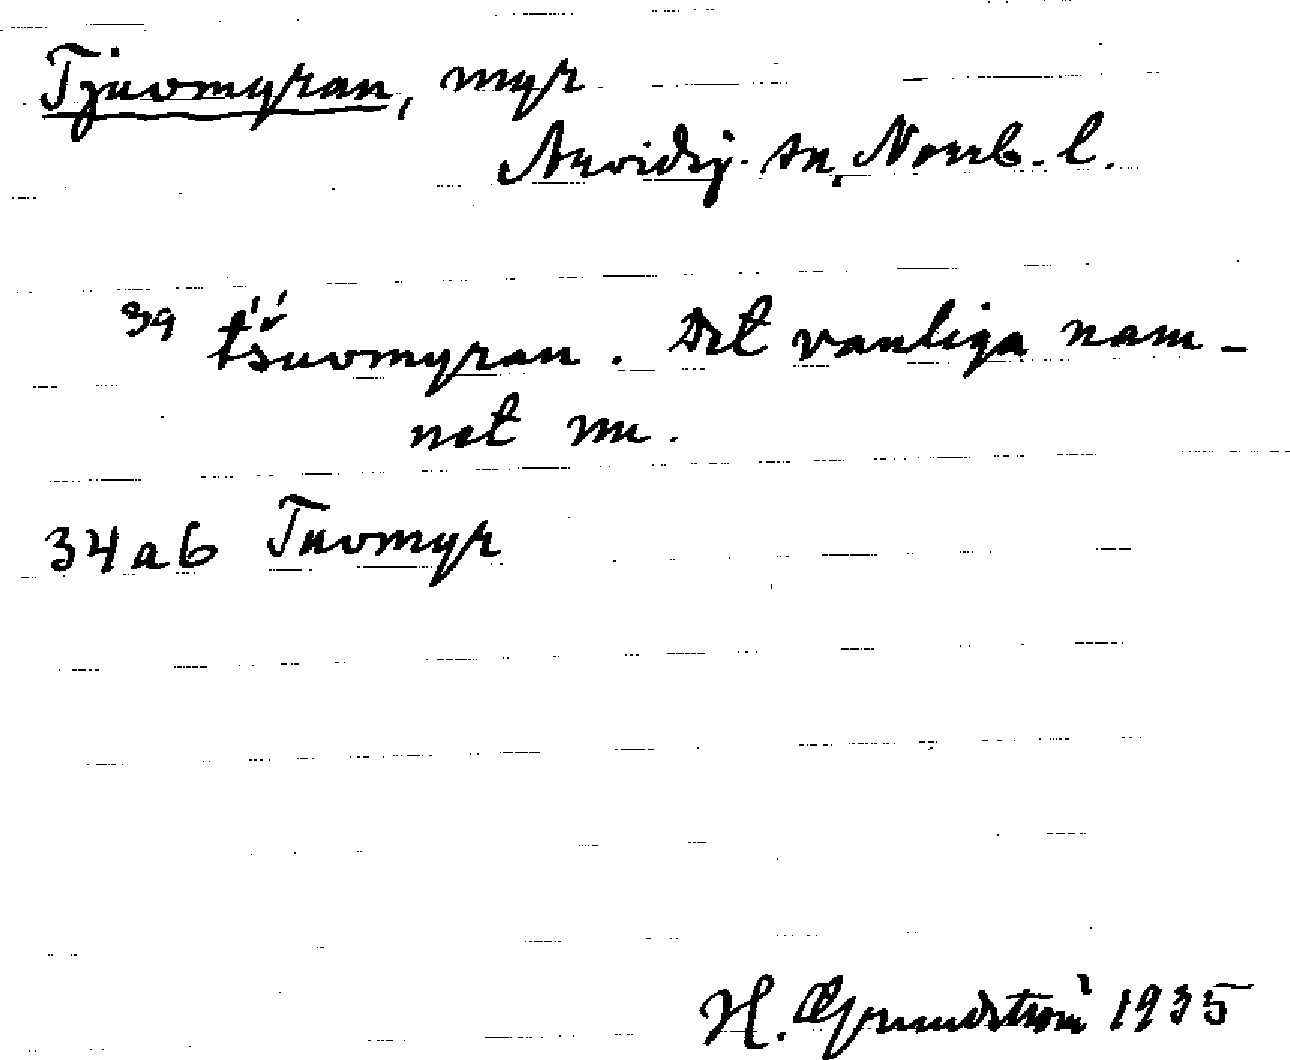 Tjuvmyran, myr
Arvidsj. sn. Norrb. l.
39 tšuvmyran. Det vanliga nam-
net nu.
34ab Tuvmyr
H. Grundström 1935